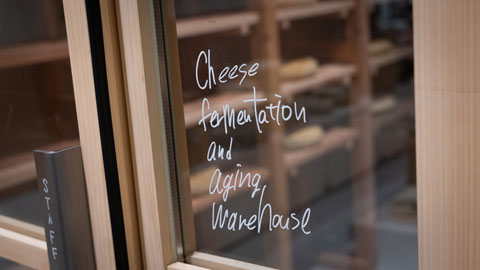 Cheese
fermentation
and
aging,
Warehouse
STAFF